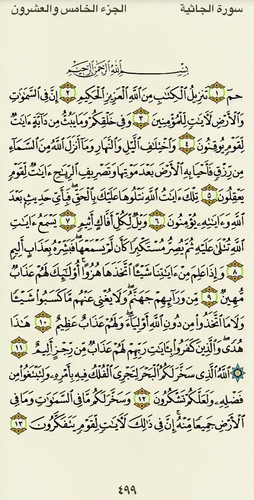 سورة الجاثية الجزء الخامس والعشرون
بِسْمِ اللَّهِ الرَّحْمَٰنِ الرَّحِيمِ
حمٓ ١ تَنزِيلُ الْكِتَابِ مِنَ اللَّهِ الْعَزِيزِ الْحَكِيمِ ٢ إِنَّ فِي السَّمَاوَاتِ
وَالْأَرْضِ لَآيَاتٍ لِّلْمُؤْمِنِينَ ٣ وَفِي خَلْقِكُمْ وَمَا يَبُثُّ مِن دَابَّةٍ آيَاتٌ
لِّقَوْمٍ يُوقِنُونَ ٤ وَاخْتِلَافِ اللَّيْلِ وَالنَّهَارِ وَمَا أَنزَلَ اللَّهُ مِنَ السَّمَاءِ
مِن رِّزْقٍ فَأَحْيَا بِهِ الْأَرْضَ بَعْدَ مَوْتِهَا وَتَصْرِيفِ الرِّيَاحِ آيَاتٌ لِّقَوْمٍ
يَعْقِلُونَ ٥ تِلْكَ آيَاتُ اللَّهِ نَتْلُوهَا عَلَيْكَ بِالْحَقِّ فَبِأَيِّ حَدِيثٍ بَعْدَ
اللَّهِ وَآيَاتِهِ يُؤْمِنُونَ ٦ وَيْلٌ لِّكُلِّ أَفَّاكٍ أَثِيمٍ ٧ يَسْمَعُ آيَاتِ
اللَّهِ تُتْلَىٰ عَلَيْهِ ثُمَّ يُصِرُّ مُسْتَكْبِرًا كَأَن لَّمْ يَسْمَعْهَا فَبَشِّرْهُ بِعَذَابٍ أَلِيمٍ
٨ وَإِذَا عَلِمَ مِنْ آيَاتِنَا شَيْئًا اتَّخَذَهَا هُزُوًا أُولَٰئِكَ لَهُمْ عَذَابٌ
مُّهِينٌ ٩ مِّن وَرَائِهِمْ جَهَنَّمُ وَلَا يُغْنِي عَنْهُم مَّا كَسَبُوا شَيْئًا
وَلَا مَا اتَّخَذُوا مِن دُونِ اللَّهِ أَوْلِيَاءَ وَلَهُمْ عَذَابٌ عَظِيمٌ ١٠ هَٰذَا
هُدًى وَالَّذِينَ كَفَرُوا بِآيَاتِ رَبِّهِمْ لَهُمْ عَذَابٌ مِّن رِّجْزٍ أَلِيمٌ ١١
اللَّهُ الَّذِي سَخَّرَ لَكُمُ الْبَحْرَ لِتَجْرِيَ الْفُلْكُ فِيهِ بِأَمْرِهِ وَلِتَبْتَغُوا مِن
فَضْلِهِ وَلَعَلَّكُمْ تَشْكُرُونَ ١٢ وَسَخَّرَ لَكُم مَّا فِي السَّمَاوَاتِ وَمَا فِي
الْأَرْضِ جَمِيعًا مِّنْهُ إِنَّ فِي ذَٰلِكَ لَآيَاتٍ لِّقَوْمٍ يَتَفَكَّرُونَ ١٣
٤٩٩